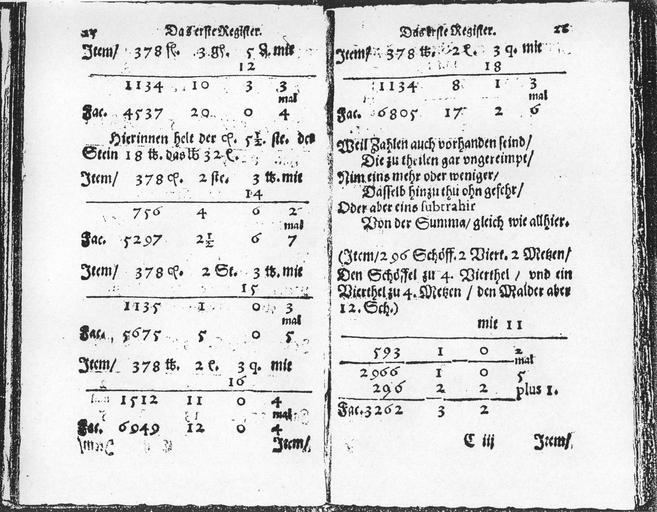 Das erste Register.
Item/ 378 fl. 3 gſ. 5 ₰. mit
12
1134 10 3 3
mal
Fac. 4537 20 0 4
Hierinnen helt der ꝯ. 5½. ſte. der
Stein 18 ℔. das ℔ 32 ł.
Item/ 378 ꝯ. 2 ſte. 3 ℔. mit
14
756 4 6 2
mal
Fac. 5297 2½ 6 7
Item/ 378 ꝯ. 2 St. 3 ℔. mit
15
1135 1 0 3
mal
Fac. 5675 5 0 5
Item/ 378 ℔. 2 ł. 3 q. mit
16
1512 11 0 4
mal
Fac. 6949 12 0 4
Item/
Das erste Register.
Item/ 378 ℔. 2 ł. 3 q. mit
18
1134 8 1 3
mal
Fac. 6805 17 2 6
Weil Zahlen auch vorhanden ſeind/
Die zu theilen gar vngereimpt/
Nim eins mehr oder weniger/
Daſſelb hinzu thu ohn gefehr/
Oder aber eins ſubtrahir
Von der Summa/ gleich wie allhier.
(Item/ 296 Schöff. 2 Viert. 2 Metzen/
Den Schöffel zu 4. Vierthel / vnd ein
Vierthel zu 4. Metzen / den Malder aber
12. Sch.)
mit 11
593 1 0 2
mal
2966 1 0 5
296 2 2 plus 1.
Fac. 3262 3 2
C iij Item/